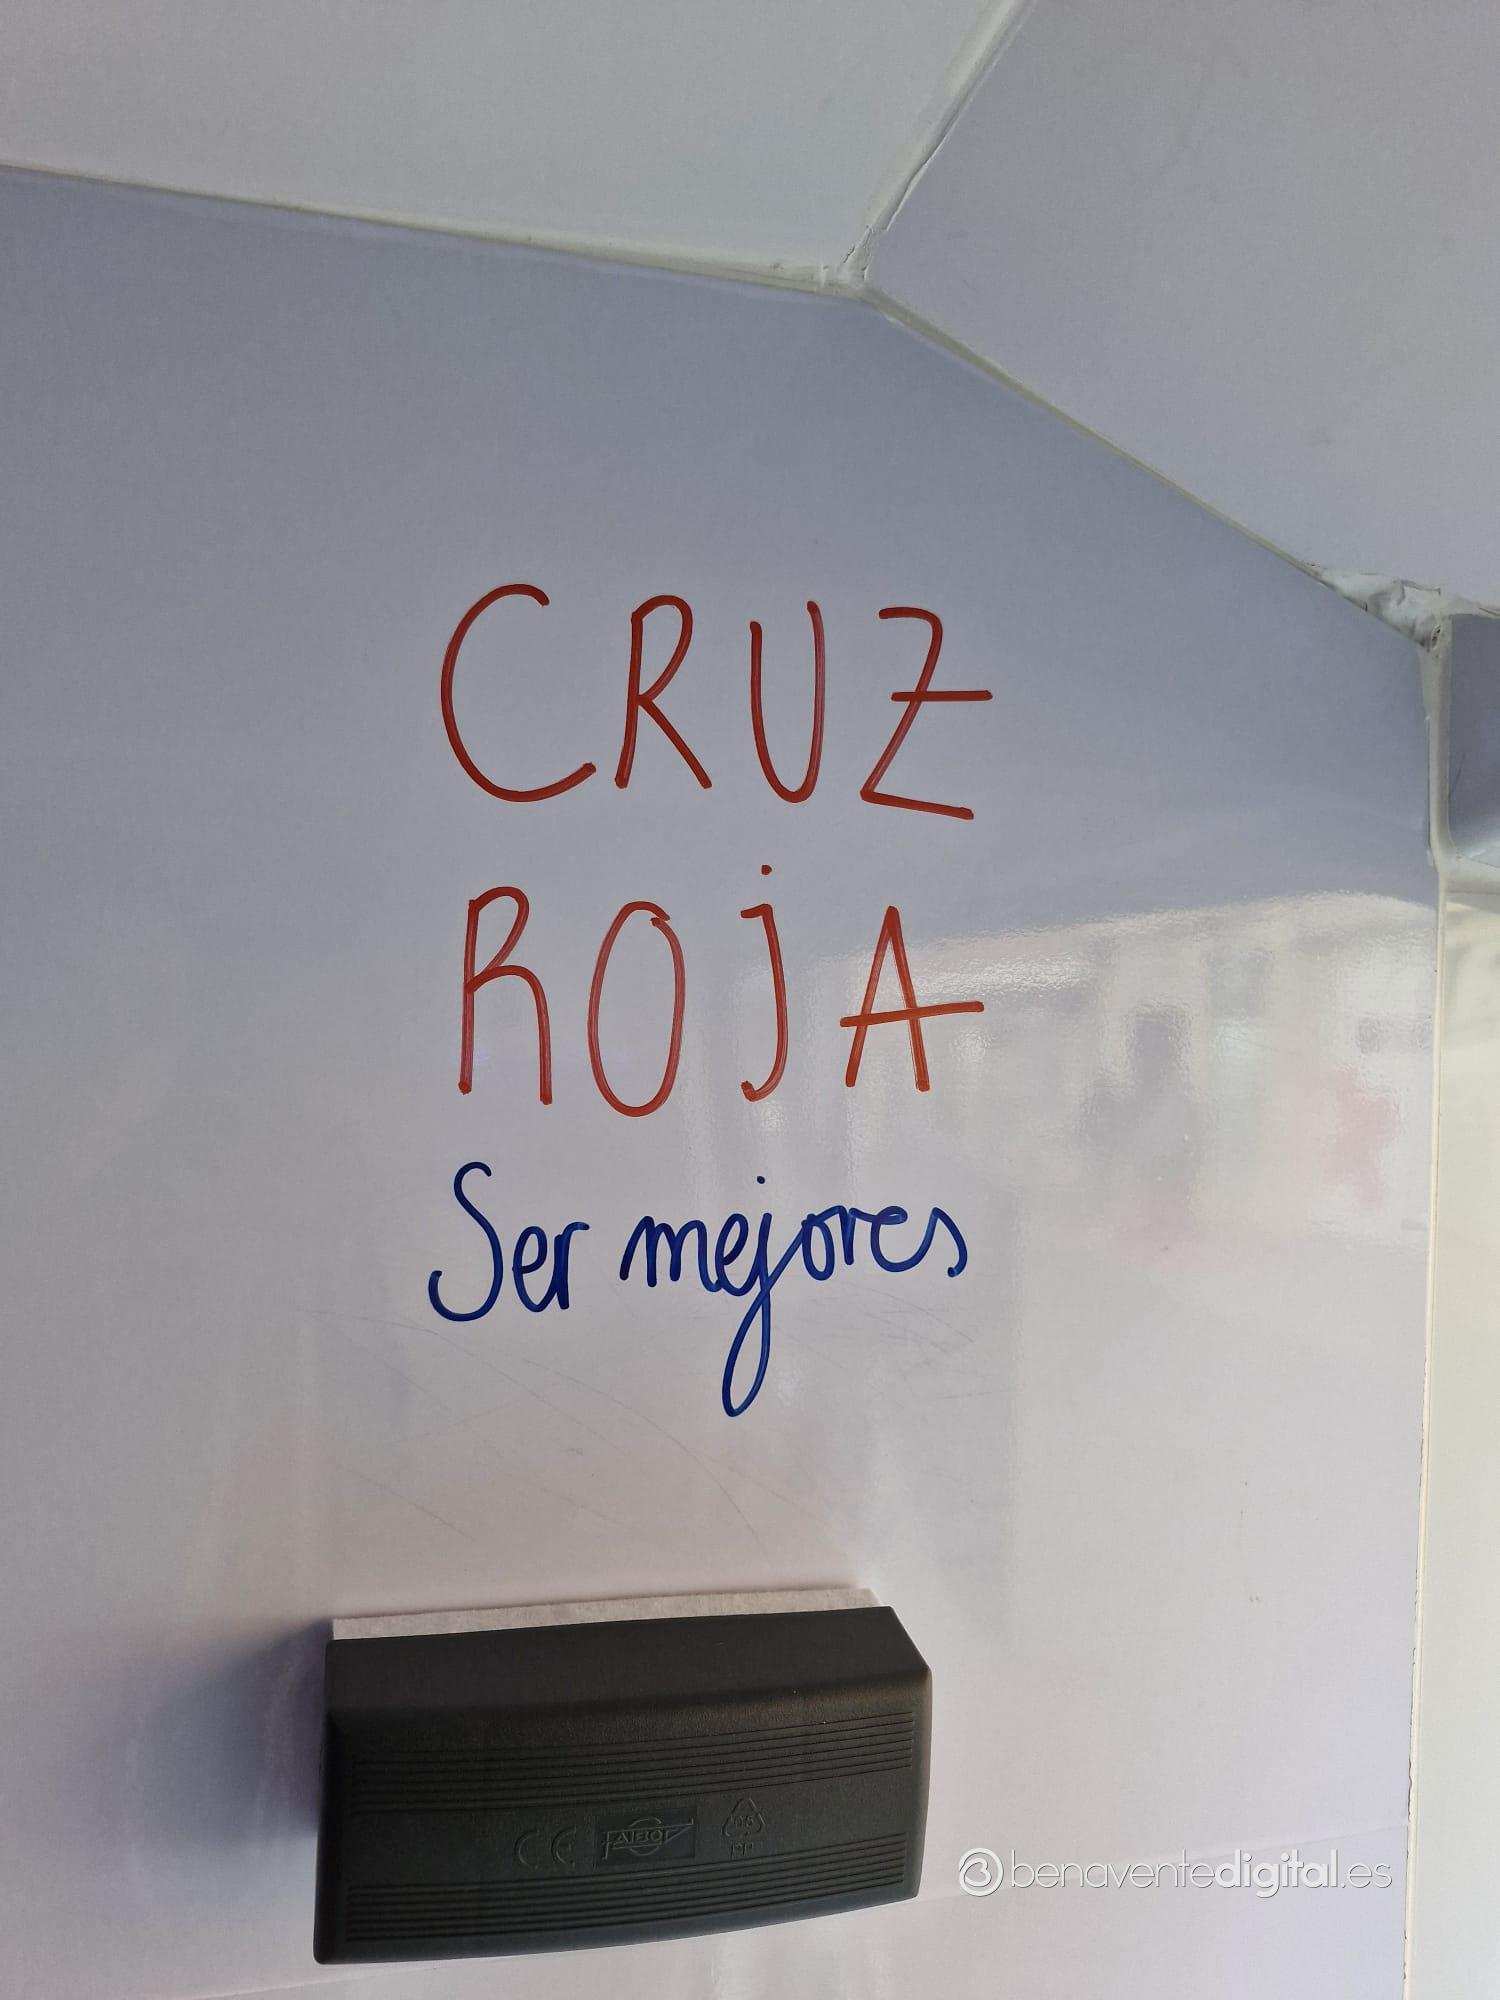 CRUZ
ROjA
Ser mejores
CE
PP
benaventedigital.es